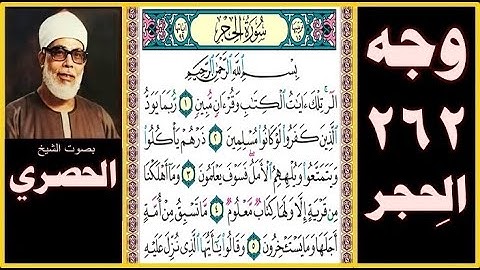 وجه
٢٦٢
الحِجر
بصوت الشيخ
الحصري
سُورَةُ الحِجْرِ
بِسْمِ اللَّهِ الرَّحْمَٰنِ الرَّحِيمِ
الٓرۚ تِلْكَ ءَايَٰتُ ٱلْكِتَٰبِ وَقُرْءَانٍ مُّبِينٍ ١ رُّبَمَا يَوَدُّ
ٱلَّذِينَ كَفَرُوا۟ لَوْ كَانُوا۟ مُسْلِمِينَ ٢ ذَرْهُمْ يَأْكُلُوا۟
وَيَتَمَتَّعُوا۟ وَيُلْهِهِمُ ٱلْأَمَلُۖ فَسَوْفَ يَعْلَمُونَ ٣ وَمَآ أَهْلَكْنَا
مِن قَرْيَةٍ إِلَّا وَلَهَا كِتَابٌ مَّعْلُومٌ ٤ مَّا تَسْبِقُ مِنْ أُمَّةٍ
أَجَلَهَا وَمَا يَسْتَـْٔخِرُونَ ٥ وَقَالُوا۟ يَٰٓأَيُّهَا ٱلَّذِى نُزِّلَ عَلَيْهِ